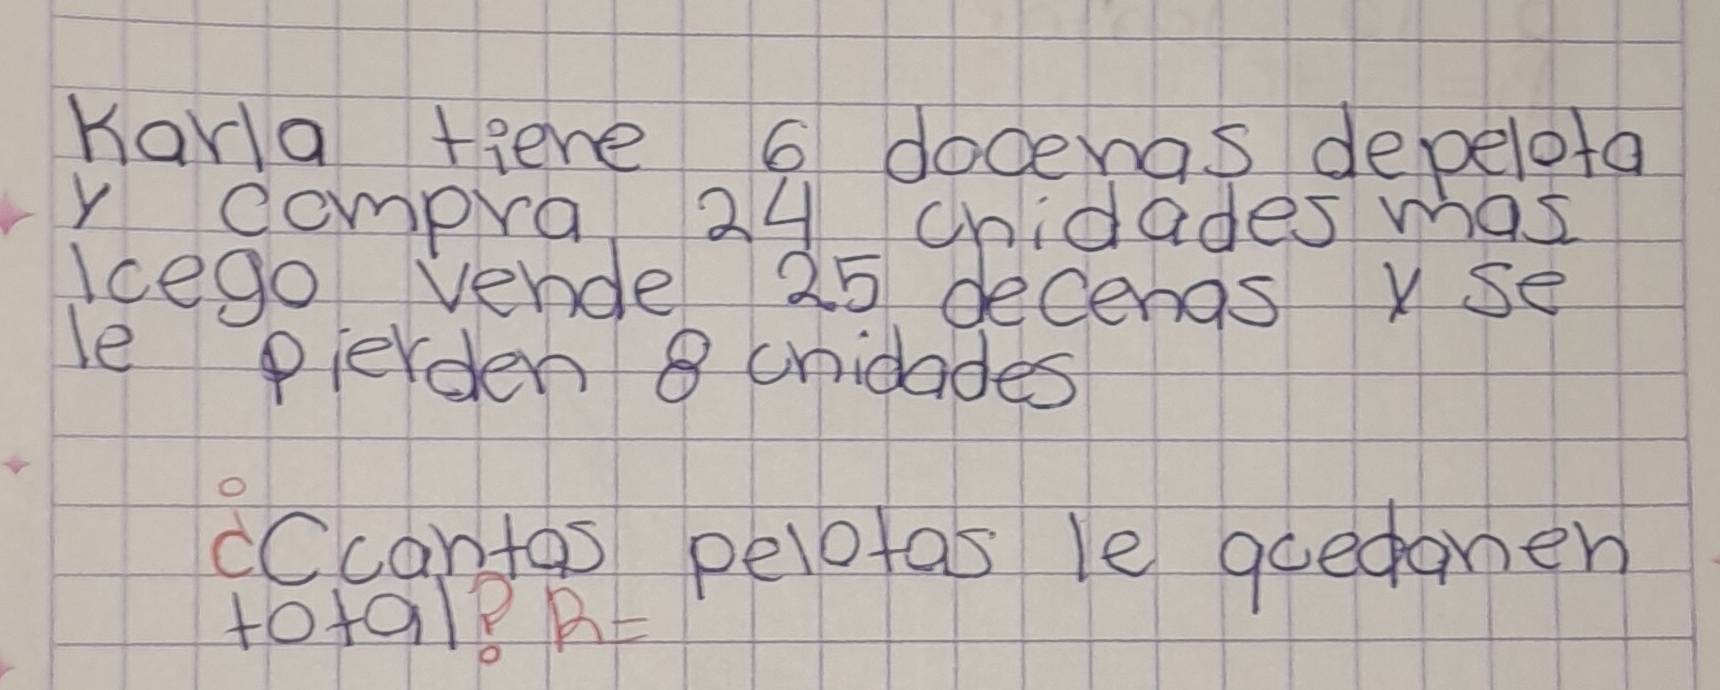 Karla tiene 6 docenas de pelota
y compra 24 unidades mas
luego vende 25 decenas y se
le pierden 8 unidades
¿Cuantas pelotas le quedan en
total? R=